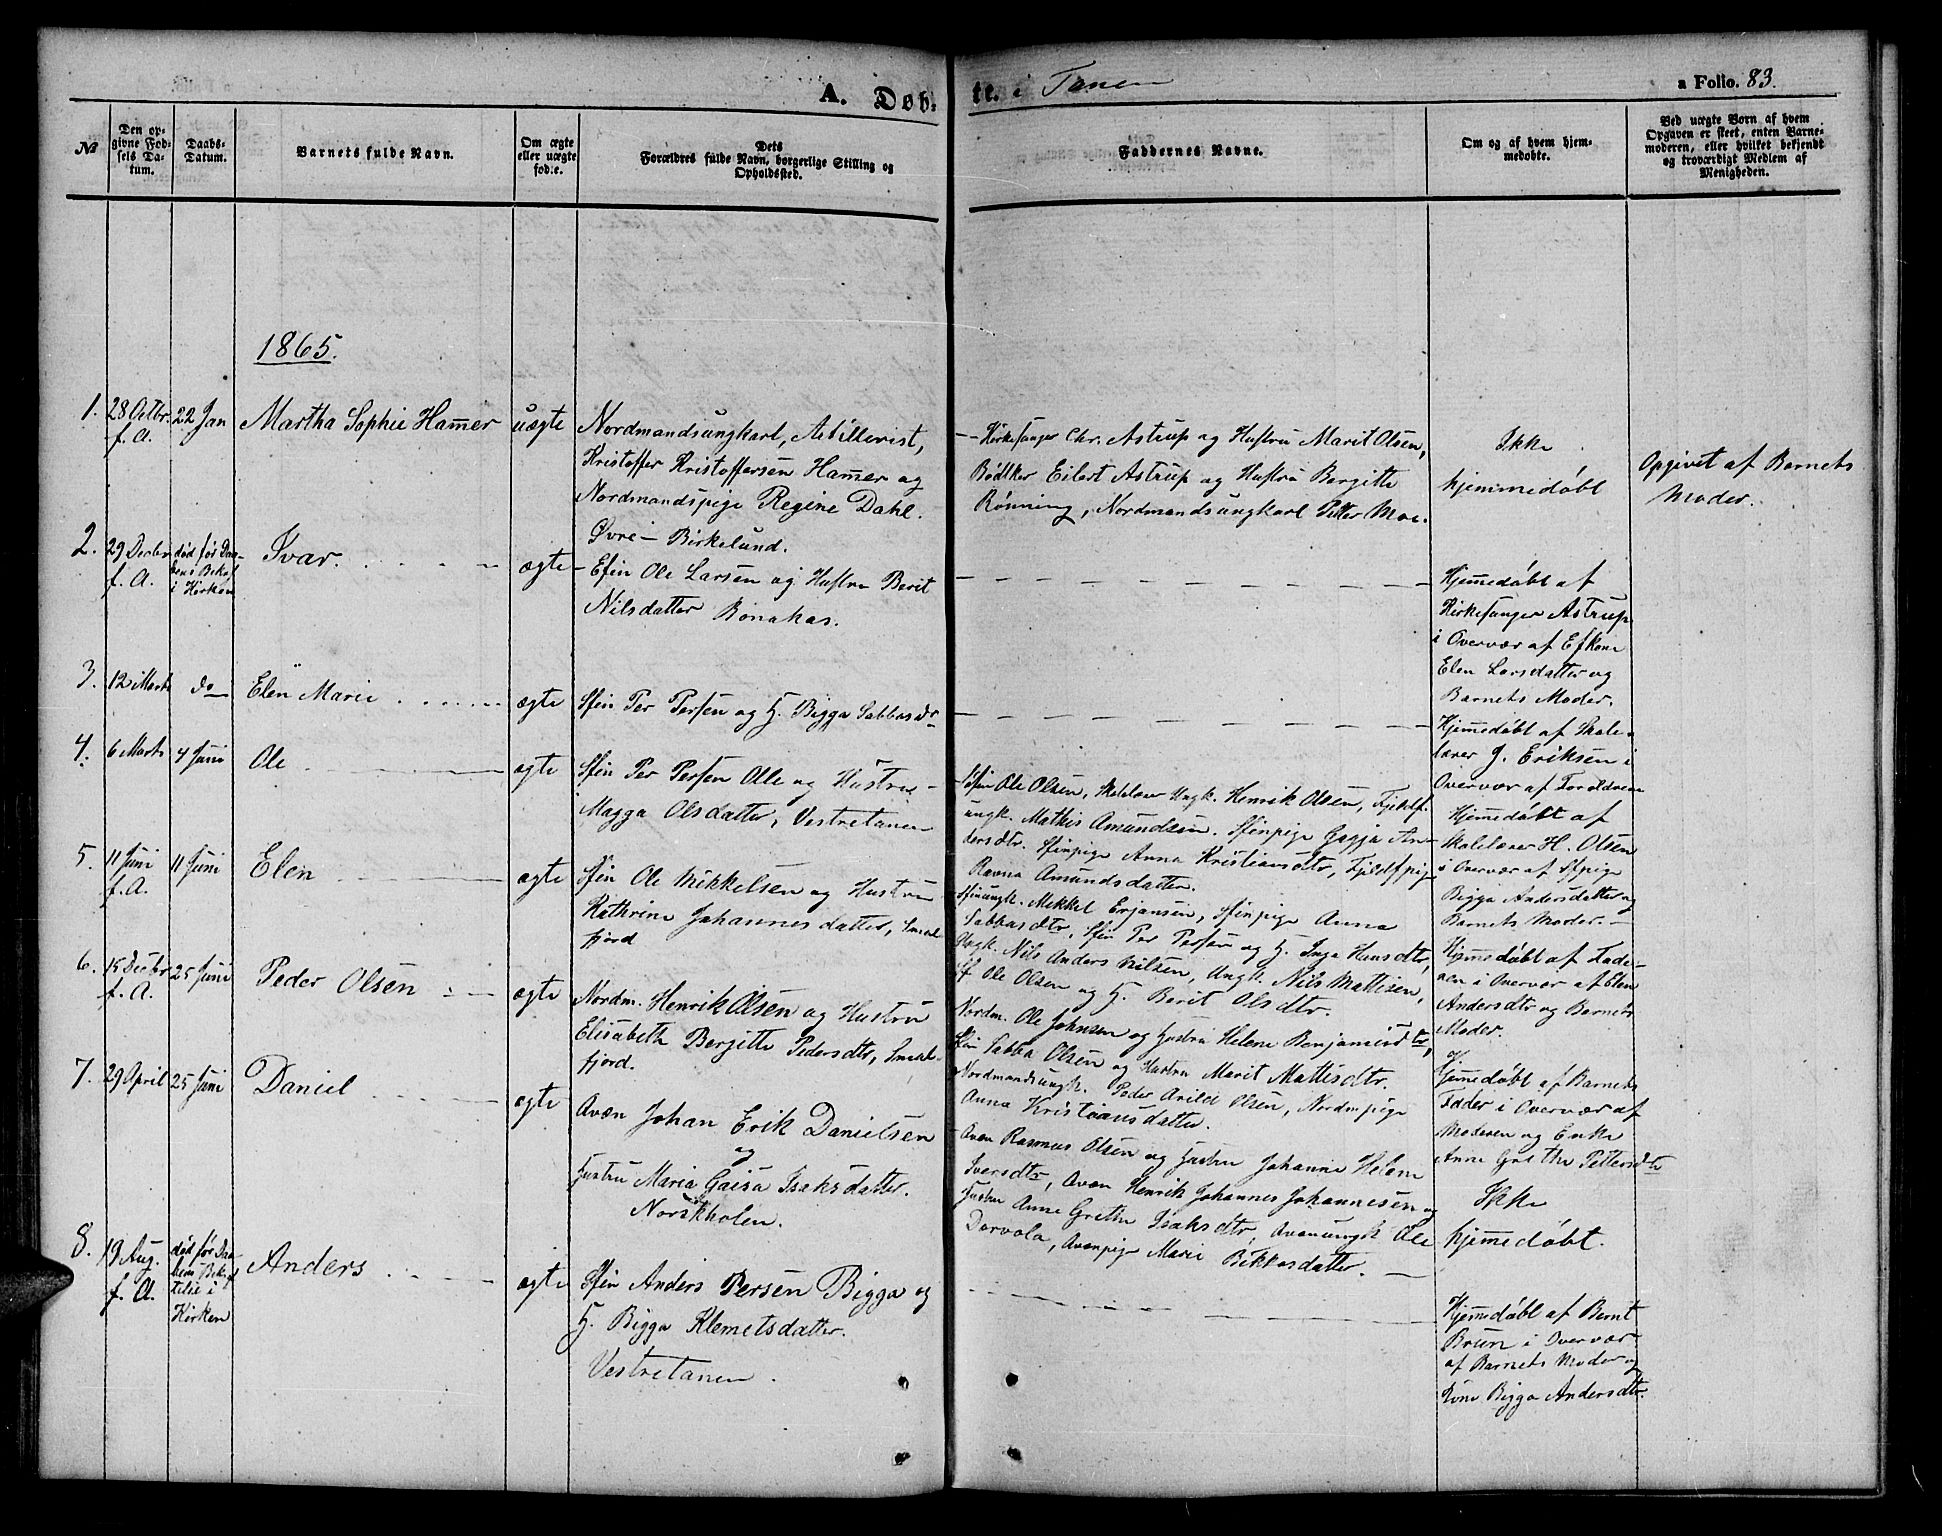 A. Døb-
te. i Tanen
a Folio. 83.
No
Den op-
givne Fød-
sels Da-
tum.
Daabs-
Datum.
Barnets fulde Navn.
Om ægte
eller uægte
fød:e.
Dets
Forældres fulde Navn, borgerlige Stilling og
Opholdssted.
Faddernes Navne.
Om og af hvem hjem-
medøbte.
Ved uægte Børn af hvem
Opgaven er skeet, enten Barne-
moderen, eller hvilket bekjendt
og troværdigt Medlem af
Menigheden.
1865.
1.
28 Octbr.
f. A.
22 Jan
Martha Sophie Hamer
uægte
Nordmandsungkarl, Artillerist,
Kristoffer Kristoffersen Hamer og
Nordmandspige Regine Dahl.
Øvre-Birkelund.
Kirkesanger Chr. Astrup og Hustru Marit Olsen,
Bødtker Eilert Astrup og Hustru Bergitte
Rønning, Nordmandsungkarl Petter Moe.
Ikke
hjemmedøbt
Opgivet af Barnets
Moder.
2.
29 Decbr
f. A.
død før Daa-
bens Bekr
i Kirken
Ivar.
ægte
Efin Ole Larsen og Hustru Berit
Nilsdatter Bonakas.
Hjemedøbt af
Kirkesanger Astrup
i Overvær af Efkone
Elen Larsdatter og
Barnets Moder.
3.
12 Marts
do
Elen Marie
ægte
Sfin Per Persen og H. Bigga Sabbasdr
Hjemedøbt af Skole-
lærer J. Eriksen i
Overvær af Forældrene
4.
6 Marts
4 Juni
Ole
ægte
Sfin Per Persen Olle og Hustru
Magga Olsdatter, Vestretanen
Sfin Ole Olsen, Skolelærer Ungk. Henrik Olsen, Fjeldf.
ungk. Mathis Amundsen. Sfinpige Gagja An-
dersdtr. Sfinpige Anna Kristiansdtr, Fjeldfpige
Ravna Amundsdatter.
Hjemedøbt af
Skolelærer H. Olsen
i Overvær af Sfpige
Bigga Andersdatter og
Barnets Moder.
5.
11 Juni
f. A.
11 Juni
Elen
ægte
Sfin Ole Mikkelsen og Hustru
Kathrine Johannesdatter, Smal-
fjord
Sfinungk. Mikkel Erjansen, Sfinpige Anna
Sabbasdtr, Sfin Per Persen og H. Inga Hansdtr,
Ungk. Nils Anders Nilsen, Ungk. Nils Mattisen,
Sf Ole Olsen og H. Berit Olsdtr.
Hjemedøbt af Fade-
ren i Overvær af Elen
Andersdtr og Barnets
Moder.
6.
15 Decbr
f. A.
25 Juni
Peder Olsen
ægte
Nordm. Henrik Olsen og Hustru
Elisabeth Bergitte Pedersdtr, Smal-
fjord.
Nordm. Ole Johnsen og Hustru Helene Benjaminsdtr,
Sfin Sabba Olsen og Hustru Marit Mattisdtr.
Nordmandsungk. Peder Arild Olsen, Nordmpige
Anna Kristiansdatter.
Hjemedøbt af Barnets
Fader i Overvær af
Moderen og Enke
Anne Grethe Pettersdtr
7.
29 April
25 Juni
Daniel
ægte
Qvæn Johan Erik Danielsen
og
Hustru Maria Gaisa Isaksdatter.
Norskholen.
Qvæn Rasmus Olsen og Hustru Johanne Helene
Iversdtr, Qvæn Henrik Johannes Johannesen og
Hustru Anne Grethe Isaksdtr, Qvænungk Ole
Dervola, Qvænpige Marie Bikkasdatter.
Ikke
hjemedøbt.
8.
19 Aug.
f. A.
død før Daa-
bens Bekræf
telse i
Kirken
Anders
ægte
Sfin Anders Persen Bigga og
H. Bigga Klemetsdatter.
Vestretanen.
Hjemedøbt af Bernt
Brun i Overvær
af Barnets Moder og
Kone Bigga Andersdtr.